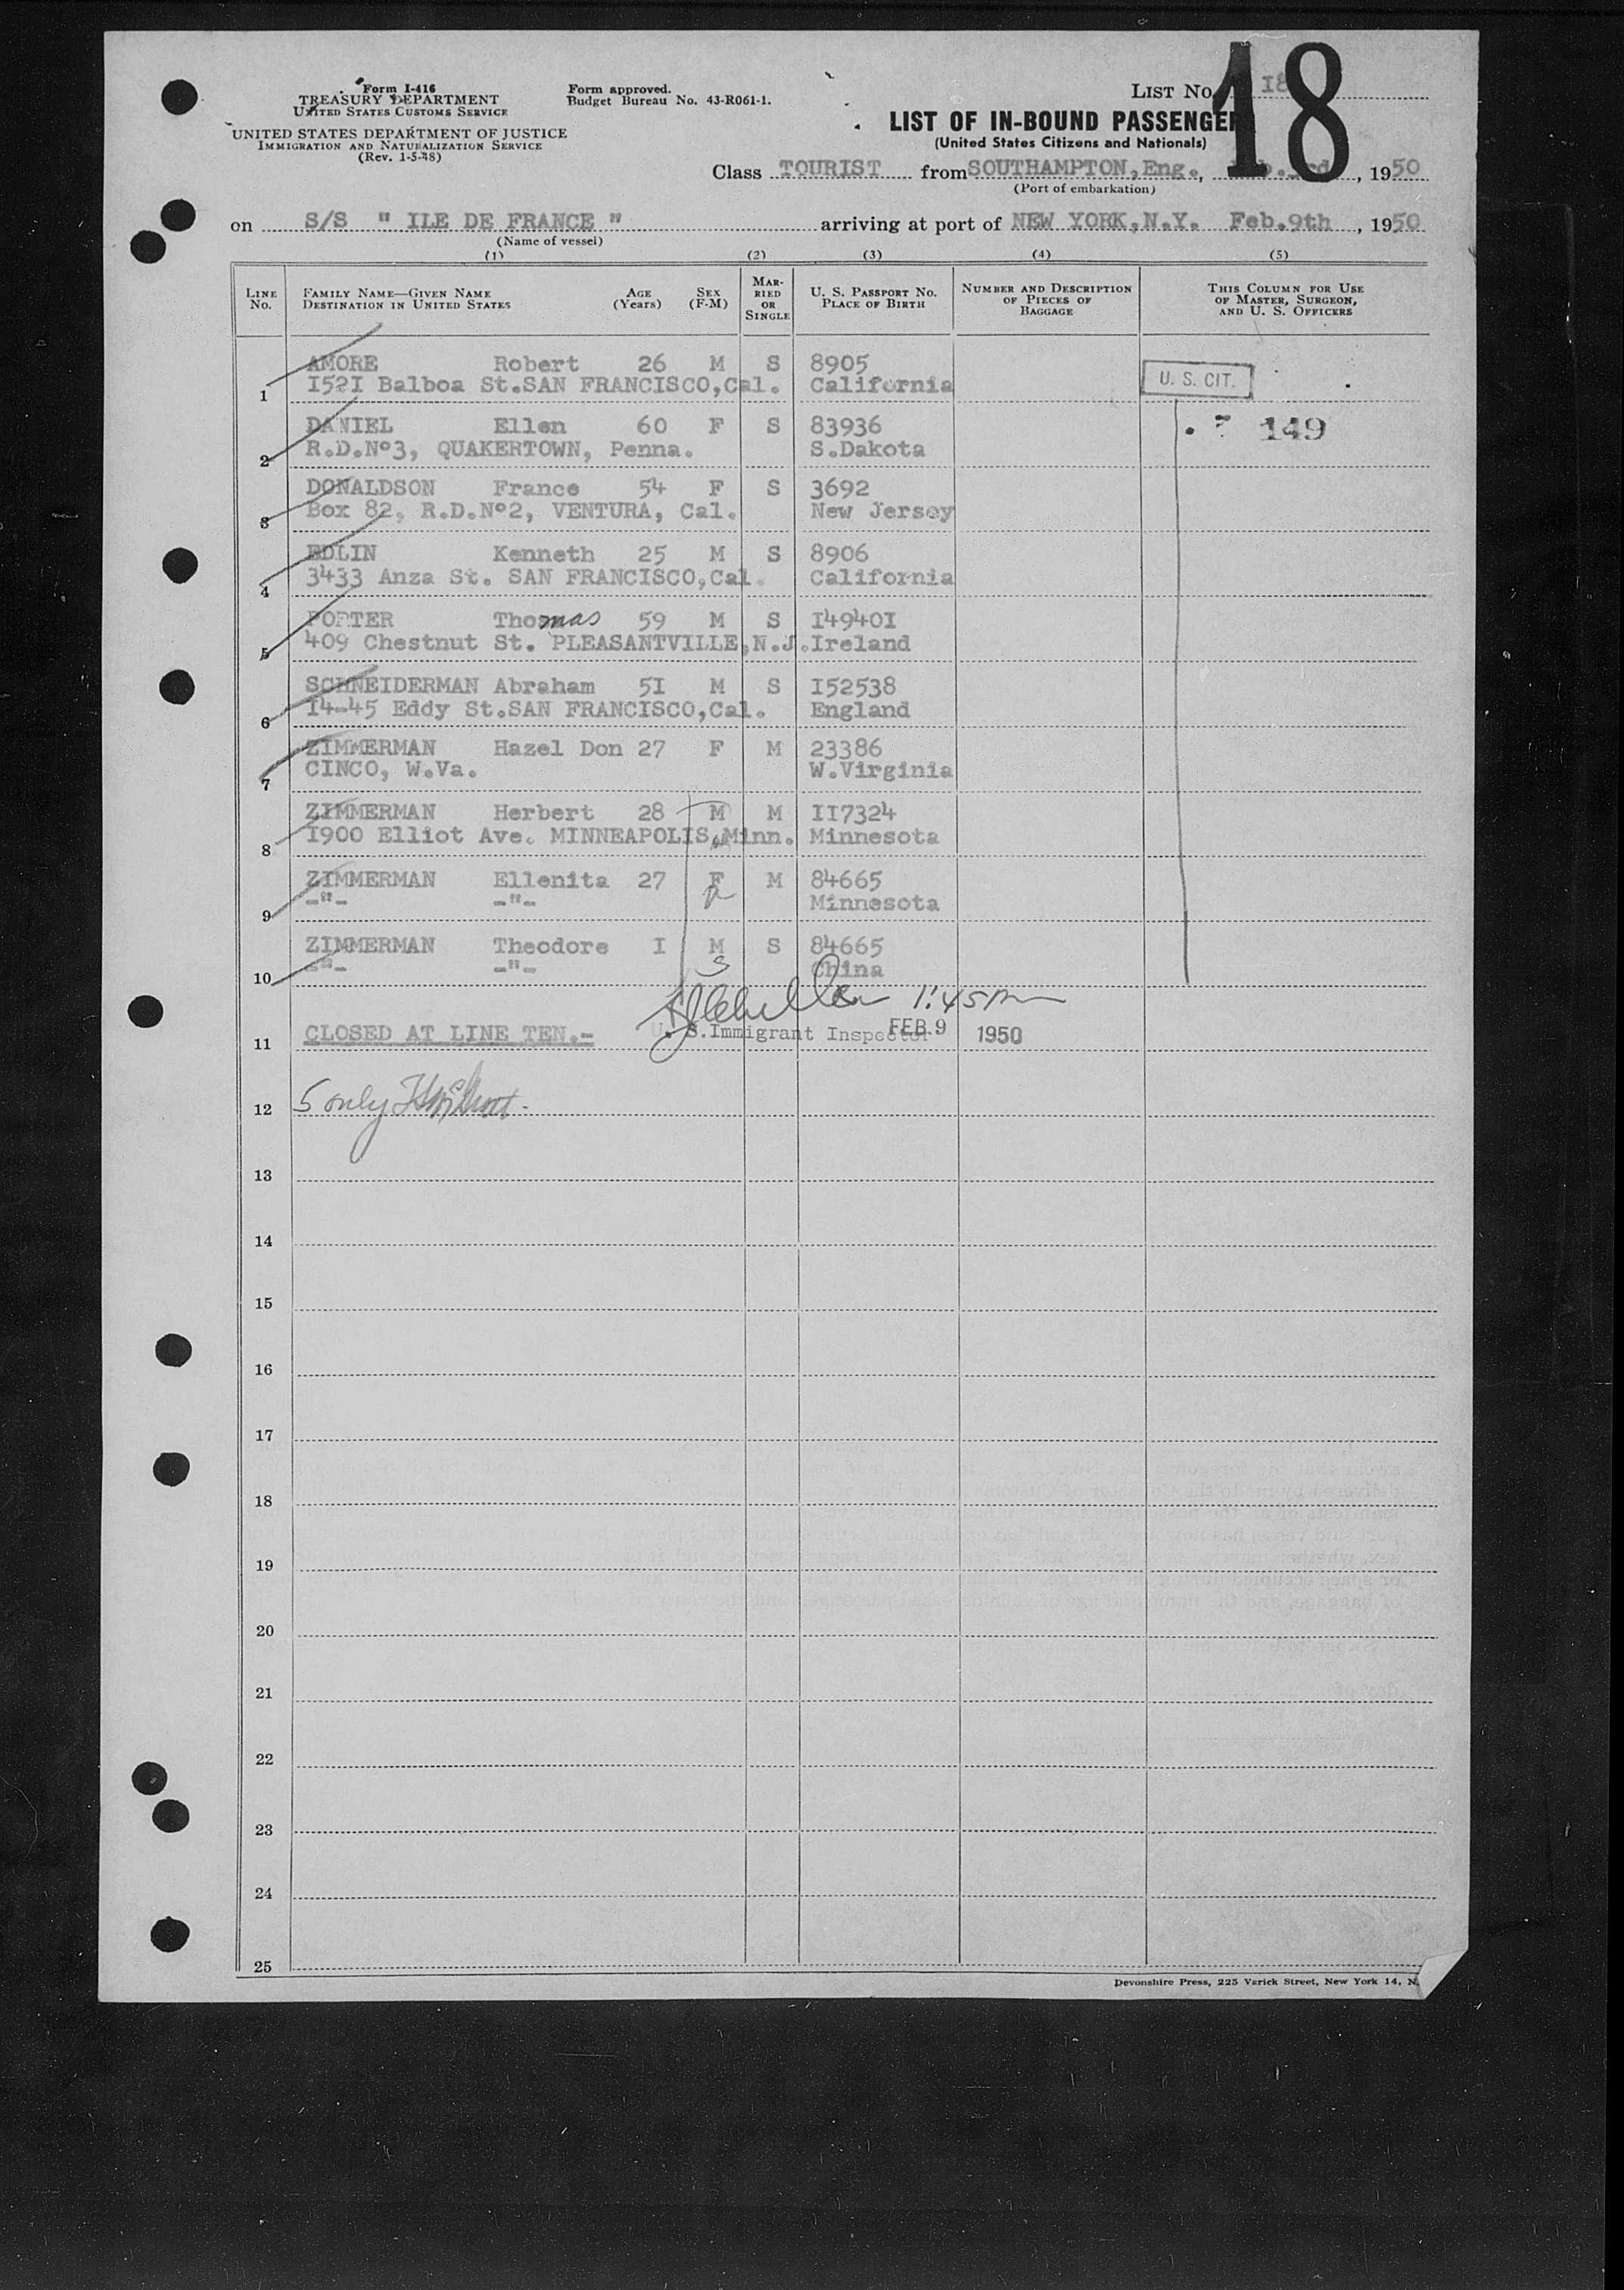 Form I-416
TREASURY DEPARTMENT
UNITED STATES CUSTOMS SERVICE
UNITED STATES DEPARTMENT OF JUSTICE
IMMIGRATION AND NATURALIZATION SERVICE
(Rev. 1-5-48)
Form approved.
Budget Bureau No. 43-R061-1.
LIST No. 18
18
LIST OF IN-BOUND PASSENGER
(United States Citizens and Nationals)
Class TOURIST from SOUTHAMPTON, Eng., 3rd, 1950
(Port of embarkation)
on S/S " ILE DE FRANCE " arriving at port of NEW YORK, N.Y. Feb.9th, 1950
(Name of vessel)
(1) (2) (3) (4) (5)
LINE No. FAMILY NAME—GIVEN NAME DESTINATION IN UNITED STATES AGE (Years) SEX (F-M) MARRIED OR SINGLE U. S. PASSPORT NO. PLACE OF BIRTH NUMBER AND DESCRIPTION OF PIECES OF BAGGAGE THIS COLUMN FOR USE OF MASTER, SURGEON, AND U. S. OFFICERS
AMORE Robert 26 M S 8905
1 I52I Balboa St.SAN FRANCISCO,Cal. California U. S. CIT.
DANIEL Ellen 60 F S 83936 149
2 R.D.Nº3, QUAKERTOWN, Penna. S.Dakota
DONALDSON France 54 F S 3692
3 Box 82, R.D.Nº2, VENTURA, Cal. New Jersey
EDLIN Kenneth 25 M S 8906
4 3433 Anza St. SAN FRANCISCO,Cal. California
PORTER Thomas 59 M S I4940I
5 409 Chestnut St. PLEASANTVILLE,N.J. Ireland
SCHNEIDERMAN Abraham 5I M S I52538
6 I4-45 Eddy St.SAN FRANCISCO,Cal. England
ZIMMERMAN Hazel Don 27 F M 23386
7 CINCO, W.Va. W.Virginia
ZIMMERMAN Herbert 28 M M II7324
8 I900 Elliot Ave. MINNEAPOLIS,Minn. Minnesota
ZIMMERMAN Ellenita 27 F M 84665
9 -"- -"- Minnesota
ZIMMERMAN Theodore I M S 84665
10 -"- -"- S China
1:45 pm
11 CLOSED AT LINE TEN.- U. S. Immigrant Inspector FEB 9 1950
12 5 only
13
14
15
16
17
18
19
20
21
22
23
24
25
Devonshire Press, 225 Varick Street, New York 14, N.